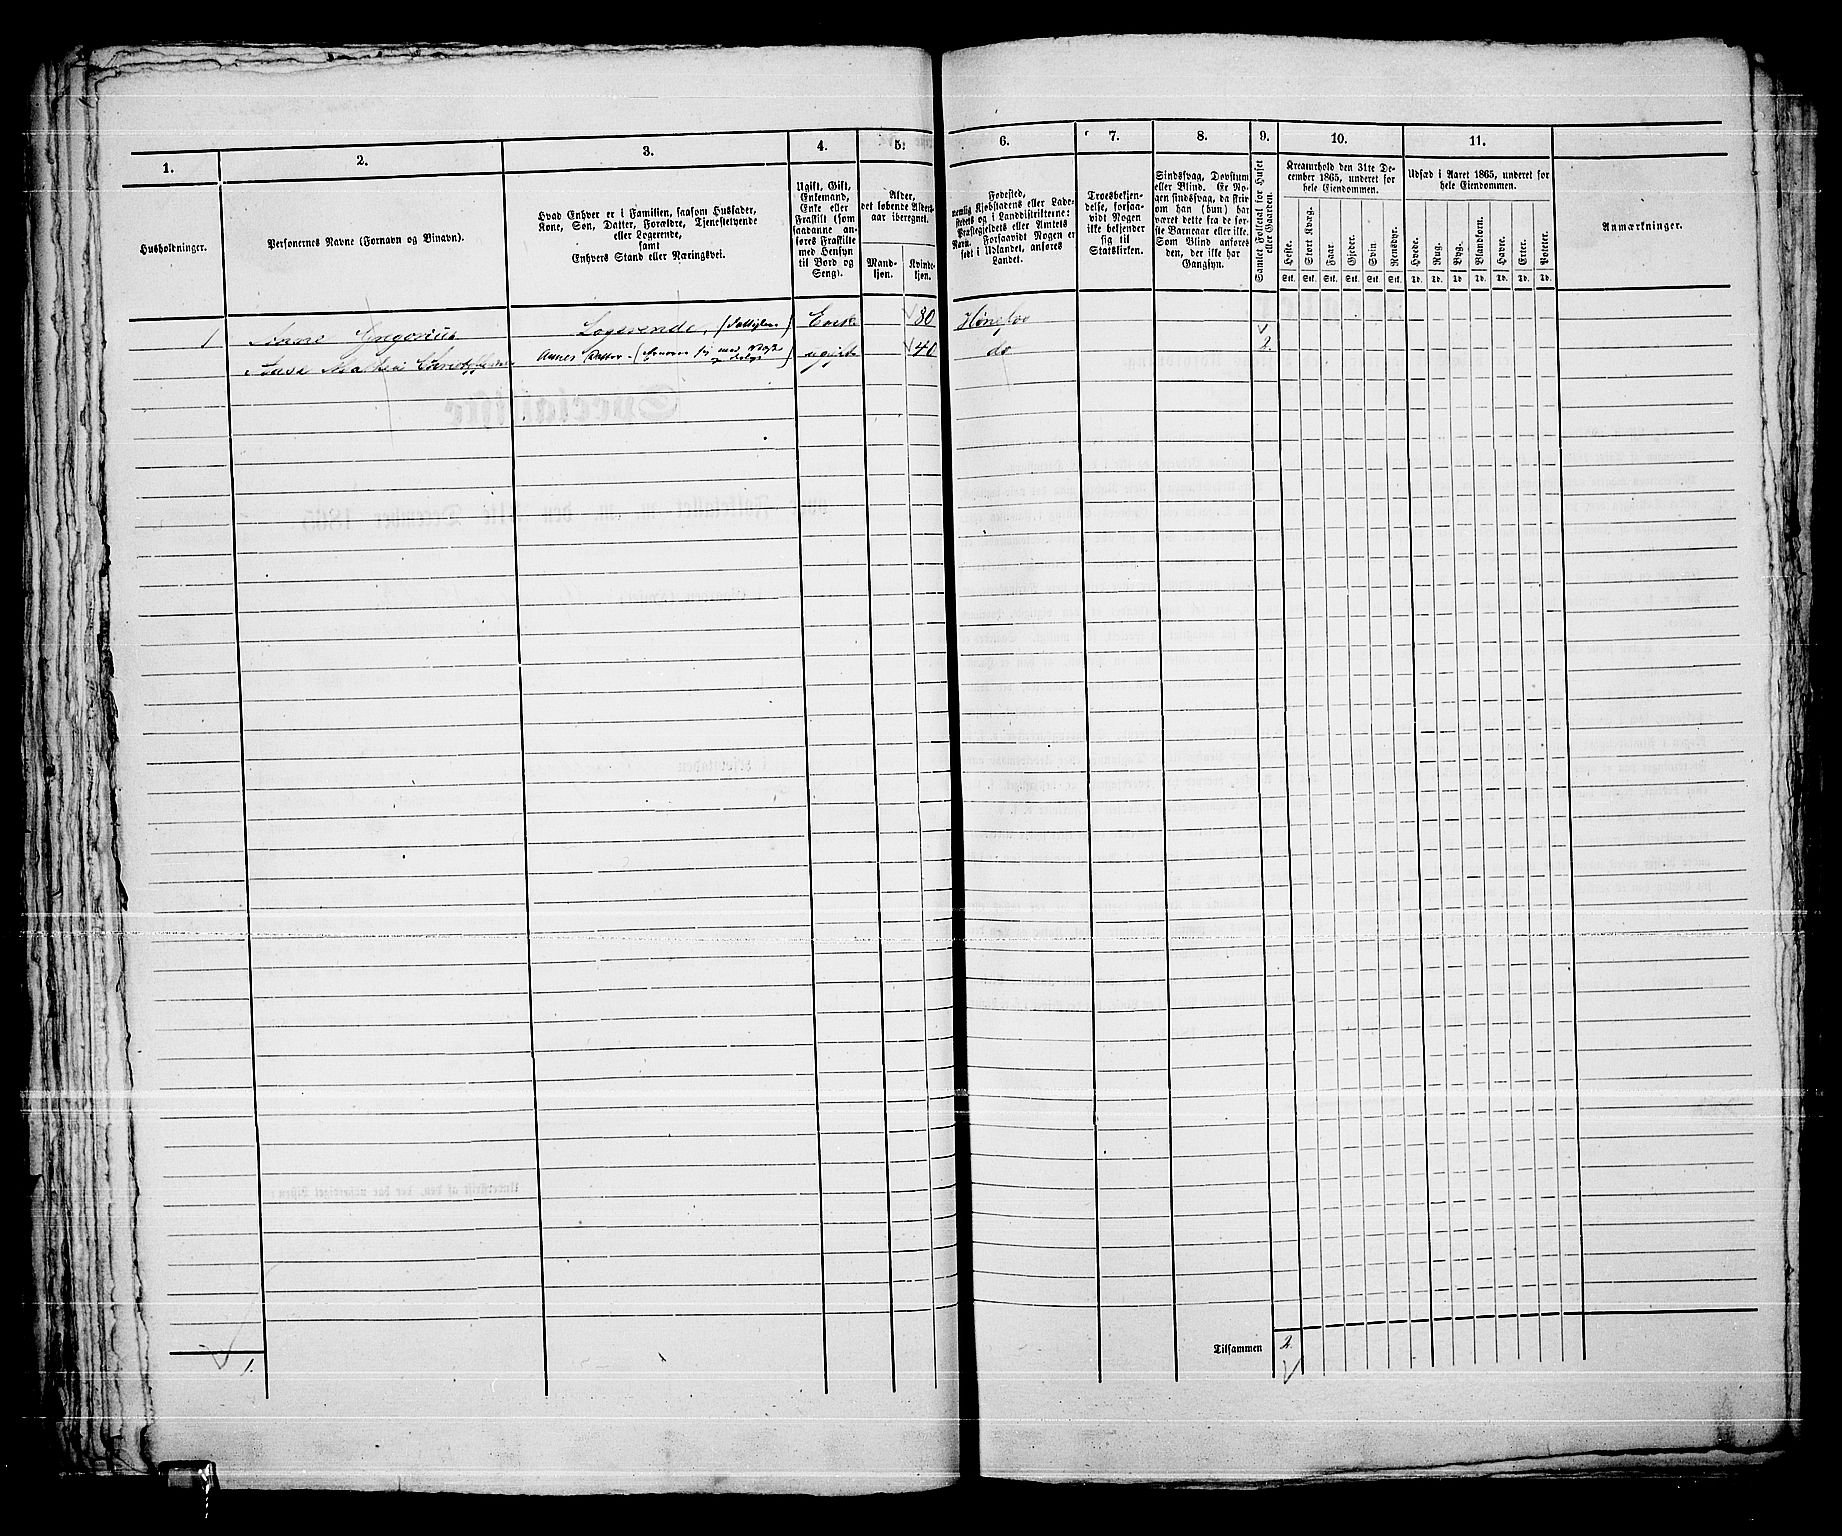 1.
2.
3.
4.
5.
6.
7.
8.
9.
10.
11.
Husholdninger.
Personernes Navne (Fornavn og Binavn).
Hvad Enhver er i Familien, saasom Husfader,
Kone, Søn, Datter, Forældre, Tjenestetyende
eller Logerende,
samt
Enhvers Stand eller Næringsvei.
Ugift, Gift,
Enkemand,
Enke eller
Fraskilt (som
saadanne an-
føres Fraskilte
med Hensyn
til Bord og
Seng).
Alder,
det løbende Alders-
aar iberegnet.
Mand-
kjøn.
Kvinde-
kjøn.
Fødested,
nemlig Kjøbstadens eller Lade-
stedets og i Landdistrikterne:
Præstegjeldets eller Amtets
Navn. Forsaavidt Nogen er
født i Udlandet, anføres
Landet.
Troesbekjen-
delse, forsaa-
vidt Nogen
ikke bekjender
sig til
Statskirken.
Sindssvag, Døvstum
eller Blind. Er No-
gen sindssvag, da skriv
om han (hun) har
været dette fra de før-
ste Barneaar eller ikke.
Som Blind anføres
den, der ikke har
Gangsyn.
Samlet Folketal for Huset
eller Gaarden.
Kreaturhold den 31te De-
cember 1865, underet for
hele Eiendommen.
Heste.
Stort Kvæg.
Faar.
Gjeder.
Svin
Rensdyr.
Stk. Stk. Stk. Stk. Stk. Stk.
Udsæd i Aaret 1865, underet for
hele Eiendommen.
Hvede.
Rug.
Byg.
Blandkorn.
Havre.
Erter.
Poteter.
Td. Td. Td. Td. Td. Td. Td.
Anmærkninger.
1 Anne Logerende, Enke 80 Hønefos
Mathea Datter ugift 40 do 2.
Tilsammen 2
1.